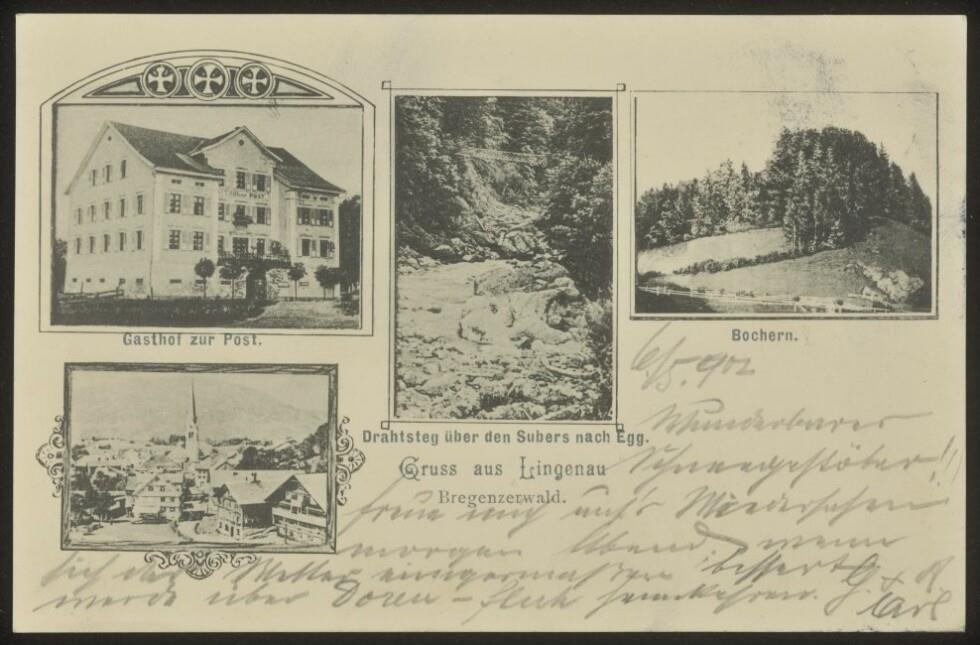 Gasthof zur Post.
Bochern.
Drahtsteg über den Subers nach Egg.
Gruss aus Lingenau
Bregenzerwald.
6/5. 902
Wunderbares
Schneegestöber!!
freue mich auf's Wiedersehen
morgen Abend, wenn
sich das Wetter einigermaßen bessert
werde über Doren - heimkehren.
Carl